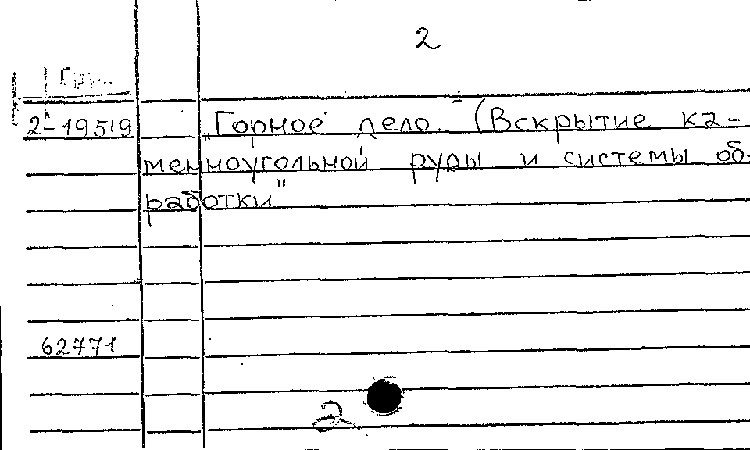 2
Гру...
2-19519 Горное дело. (Вскрытие ка-
менноугольной руды и системы об-
работки"
62771
2